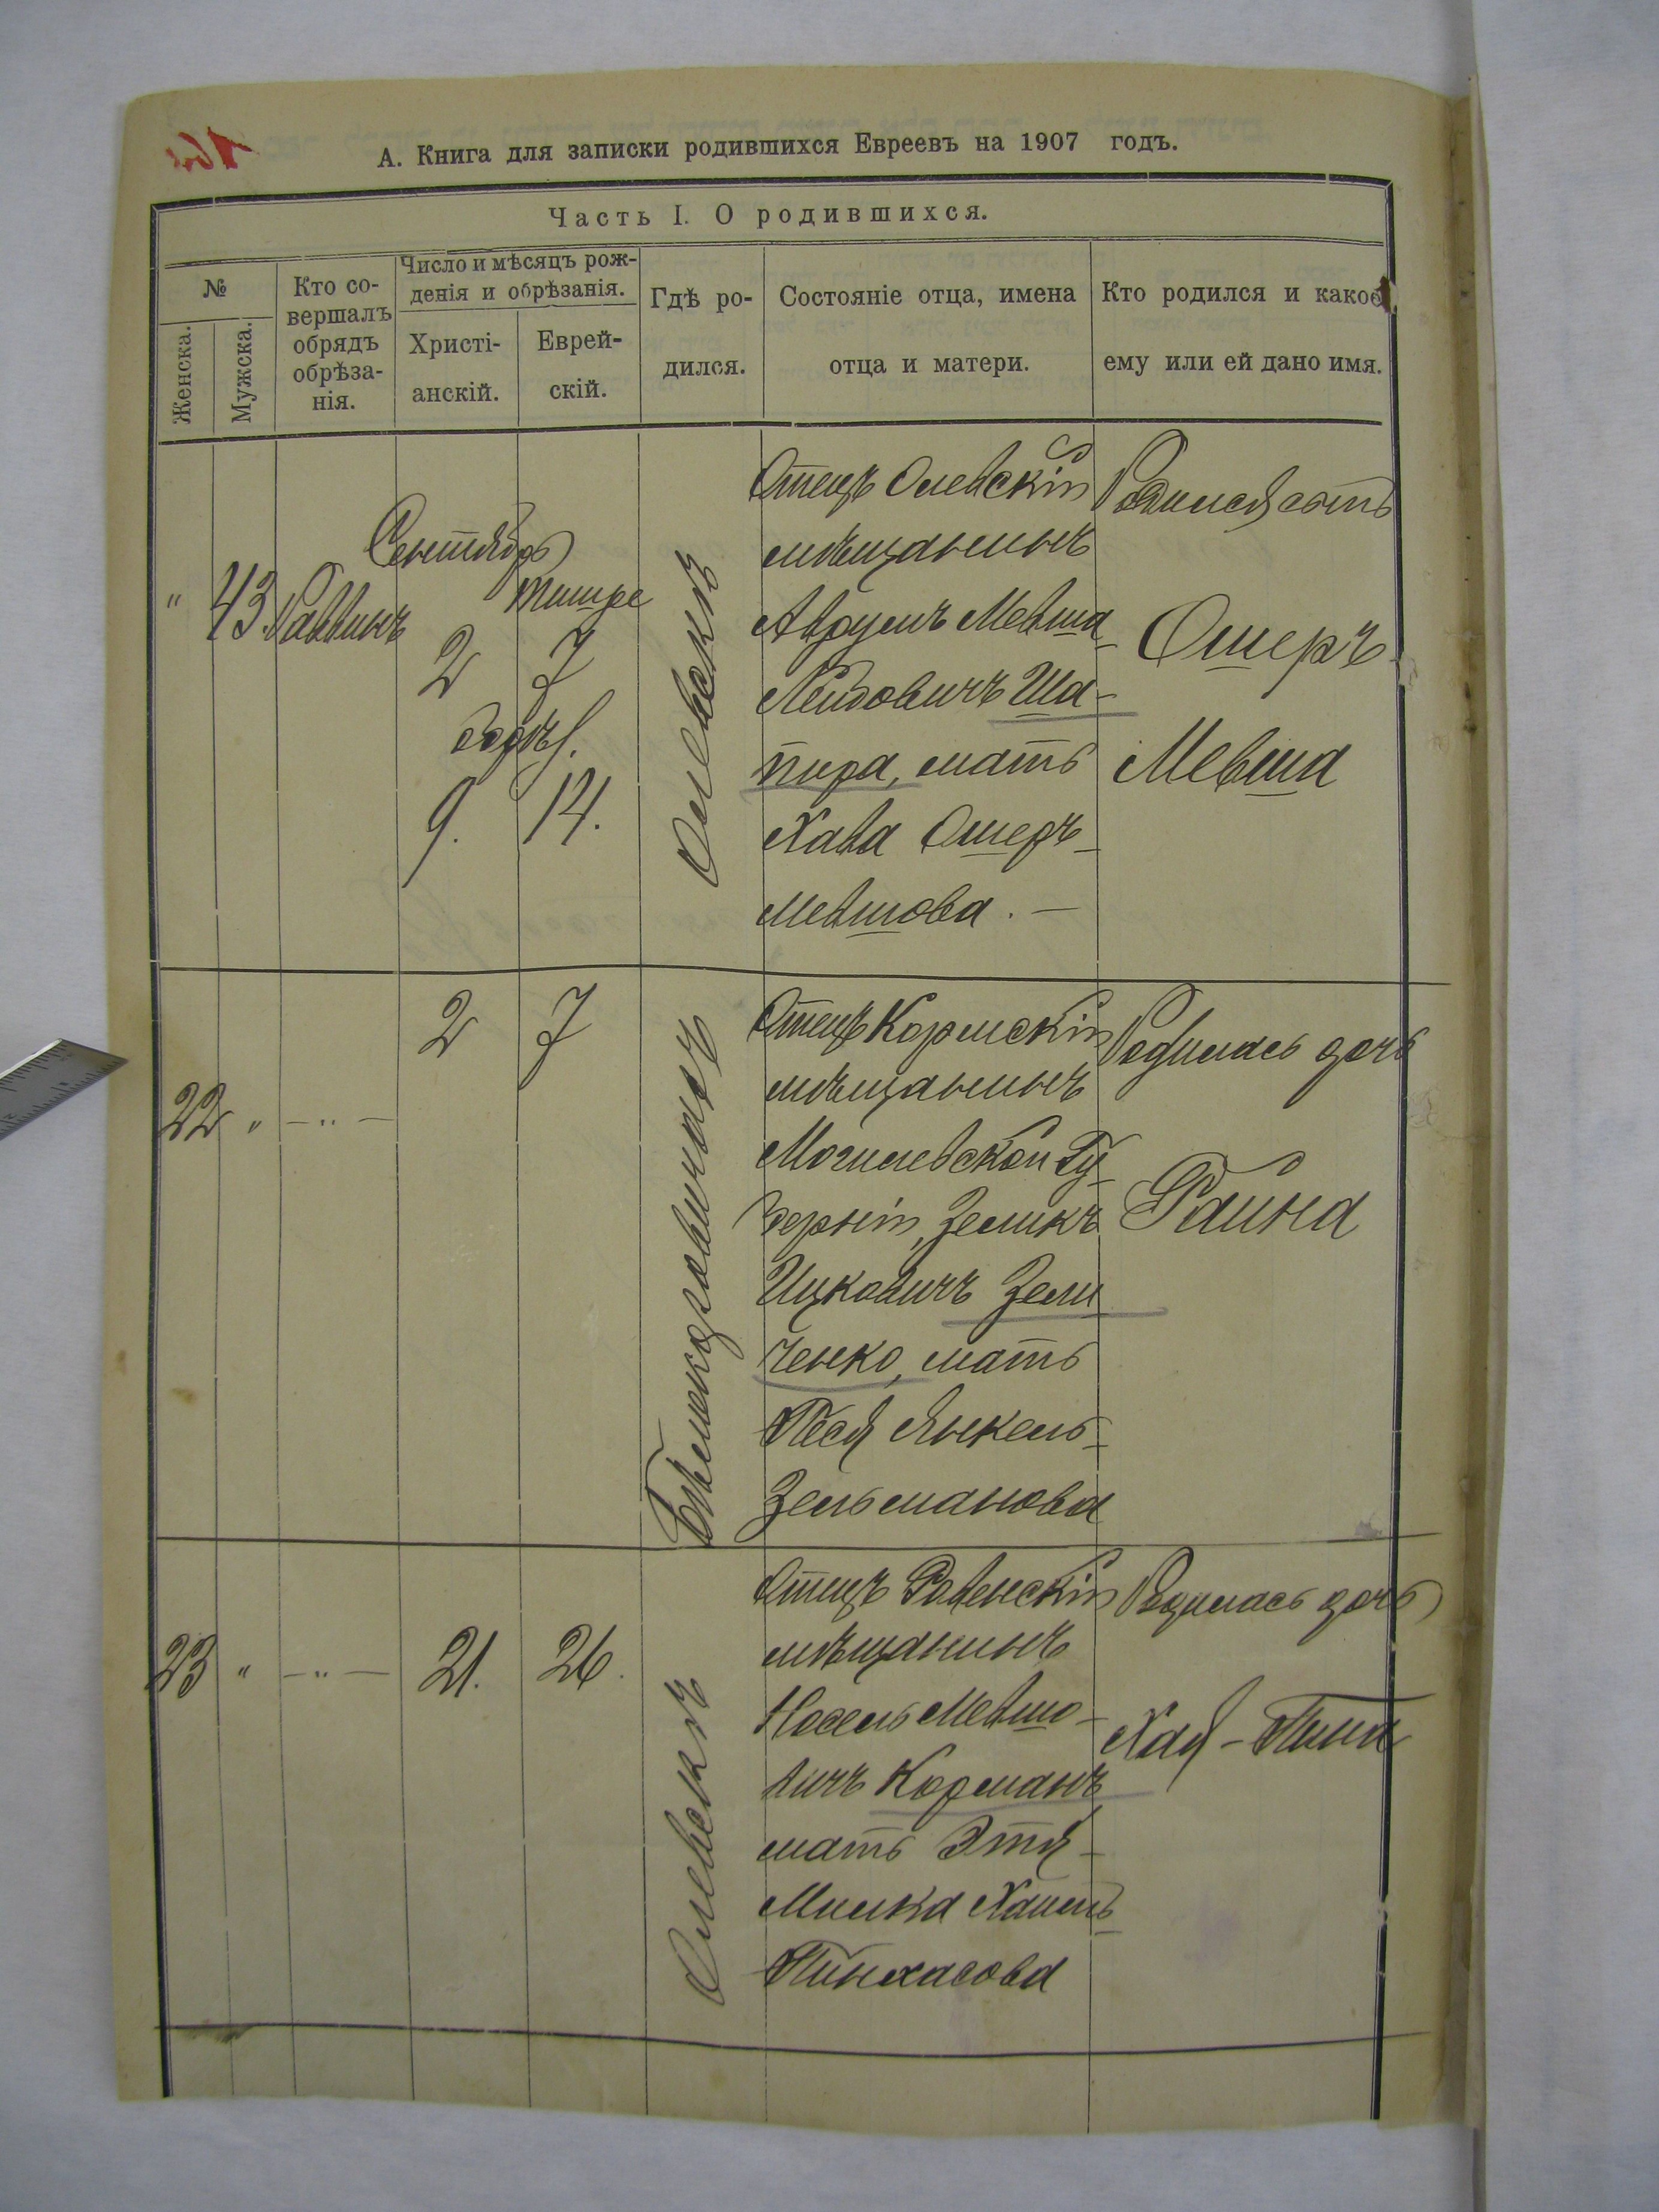 А. Книга для записки родившихся Евреевъ на 1907 годъ.
Часть I. О родившихся.
№
Женска.
Мужска.
Кто со-
вершалъ
обрядъ
обрѣза-
нія.
Число и мѣсяцъ рож-
денія и обрѣзанія.
Христі-
анскій.
Еврей-
скій.
Гдѣ ро-
дился.
Состояніе отца, имена
отца и матери.
Кто родился и какое
ему или ей дано имя.
" 43. Раввинъ
Сентябрь
Тишре
2 7
обрѣз.
9. 14.
Олевскъ
Отецъ Олевскій
мѣщанинъ
Аврумъ Мевша
Лейбовичъ Ша-
пира, мать
Хава Ошеръ-
Мевшова. —
Родился сынъ
Ошеръ
Мевша
22 " — " —
2 7
Отецъ Кормскій
мѣщанинъ
Могилевской Гу-
берніи, Зеликъ
Ицковичъ Зели
ченко, мать
Песя Янкель-
Зельманова
Родилась дочь
Раина
23 " — " —
21. 26.
Олевскъ
Отецъ Ровенскій
мѣщанинъ
Носель Мевшо-
вичъ Корманъ
мать Этя-
Милка Хаимъ-
Пинхасова
Родилась дочь
Хая-Пина